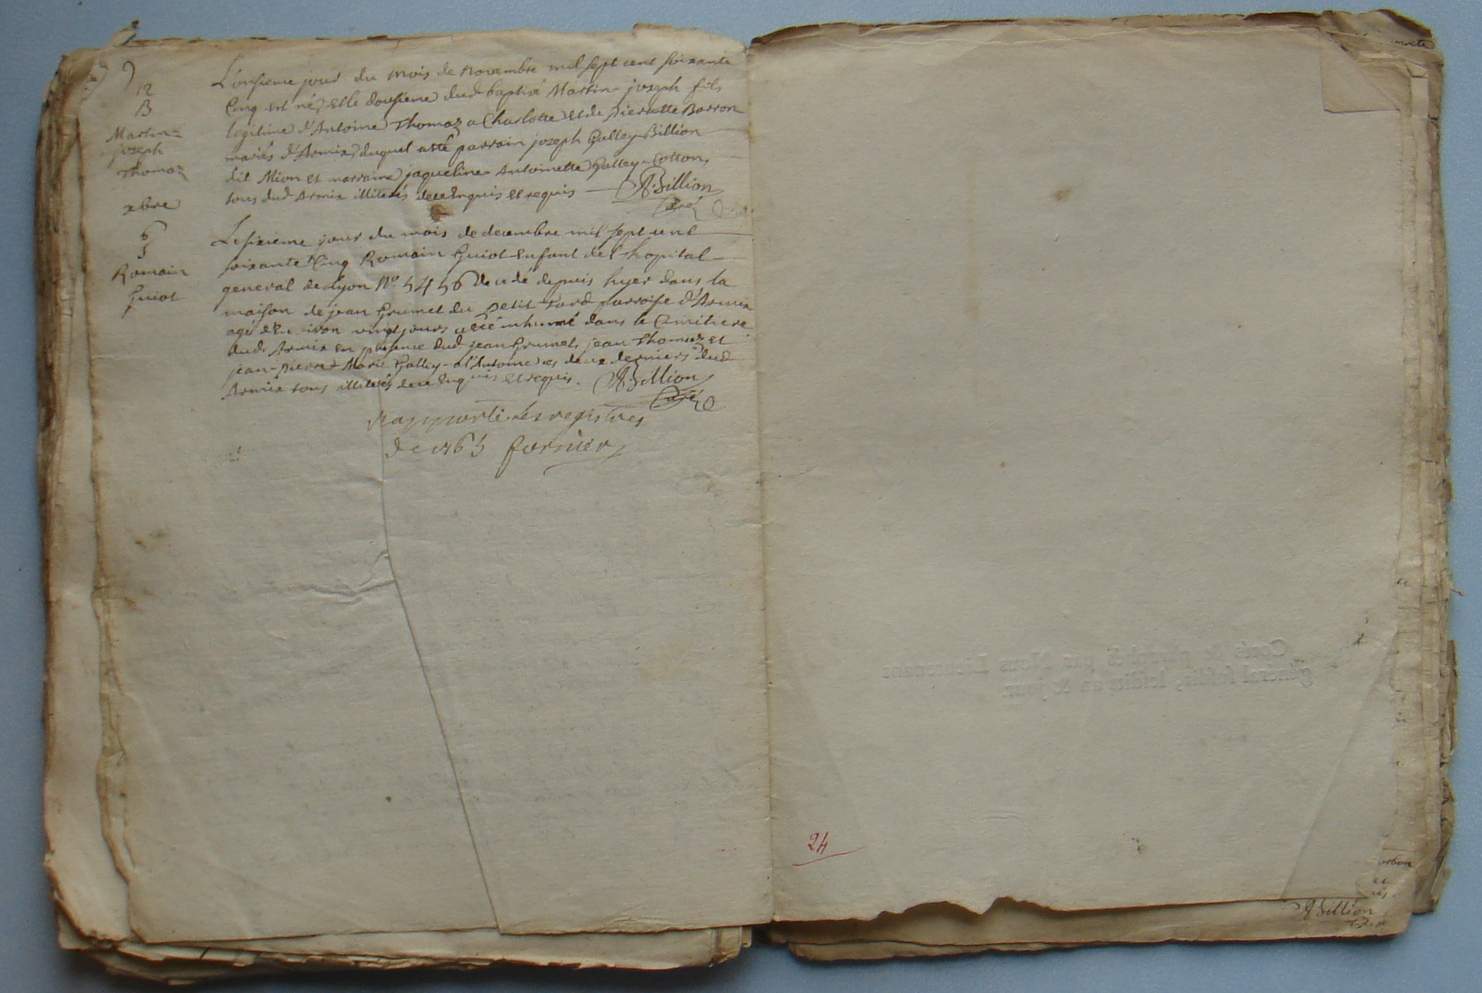 9
12
B
Martin=
joseph
Thomaz
L'onsieme jour du mois de novembre mil sept cent soixante
Cinq est né, et le dousieme dud. baptisé Martin-joseph fils
legitime d'Antoine Thomaz a Charlotte et de pierrette Barron
mariés d'Armix, duquel a été parrain joseph Gulley-Billion
dit Mion et marraine jaqueline-Antoinette Galley-Cotton,
tous dud. Armix illiterés de ce Enquis et requis — ABillion
Curé
xbre
6
S
Romain
Guiot
Le sixieme jour du mois de decembre mil sept cent
soixante Cinq Romain Guiot Enfant de l'hopital
general de Lyon No 5456 decedé depuis hyer dans la
maison de jean Grumet du petit parroisse d'Armix
agé d'Environ vingt jours a été inhumé dans le Cimitiere
dud. Armix en presence dud. jean Grumet, jean Thomaz et
jean-pierre Marc Galley- a l'Antoine ces deux derniers dud.
Armix tous illiterés de ce Enquis et requis. ABillion
Curé
Rapporté les registres
de 1765 fornier
Coté & paraphé par Nous Lieutenant
général susdit, lesdits an & jour
24
ABillion